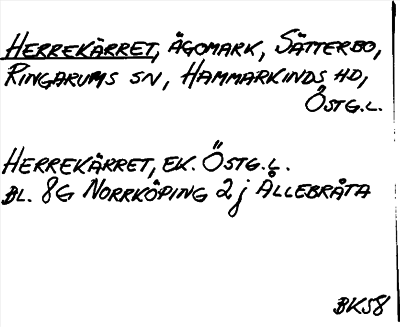 HERREKÄRRET, ÄGOMARK, SÄTTERBO,
RINGARUMS SN, HAMMARKINDS HD,
ÖSTG.L.
HERREKÄRRET, EK. ÖSTG.L.
BL. 8G NORRKÖPING 2j ÅLLEBRÅTA
BK58